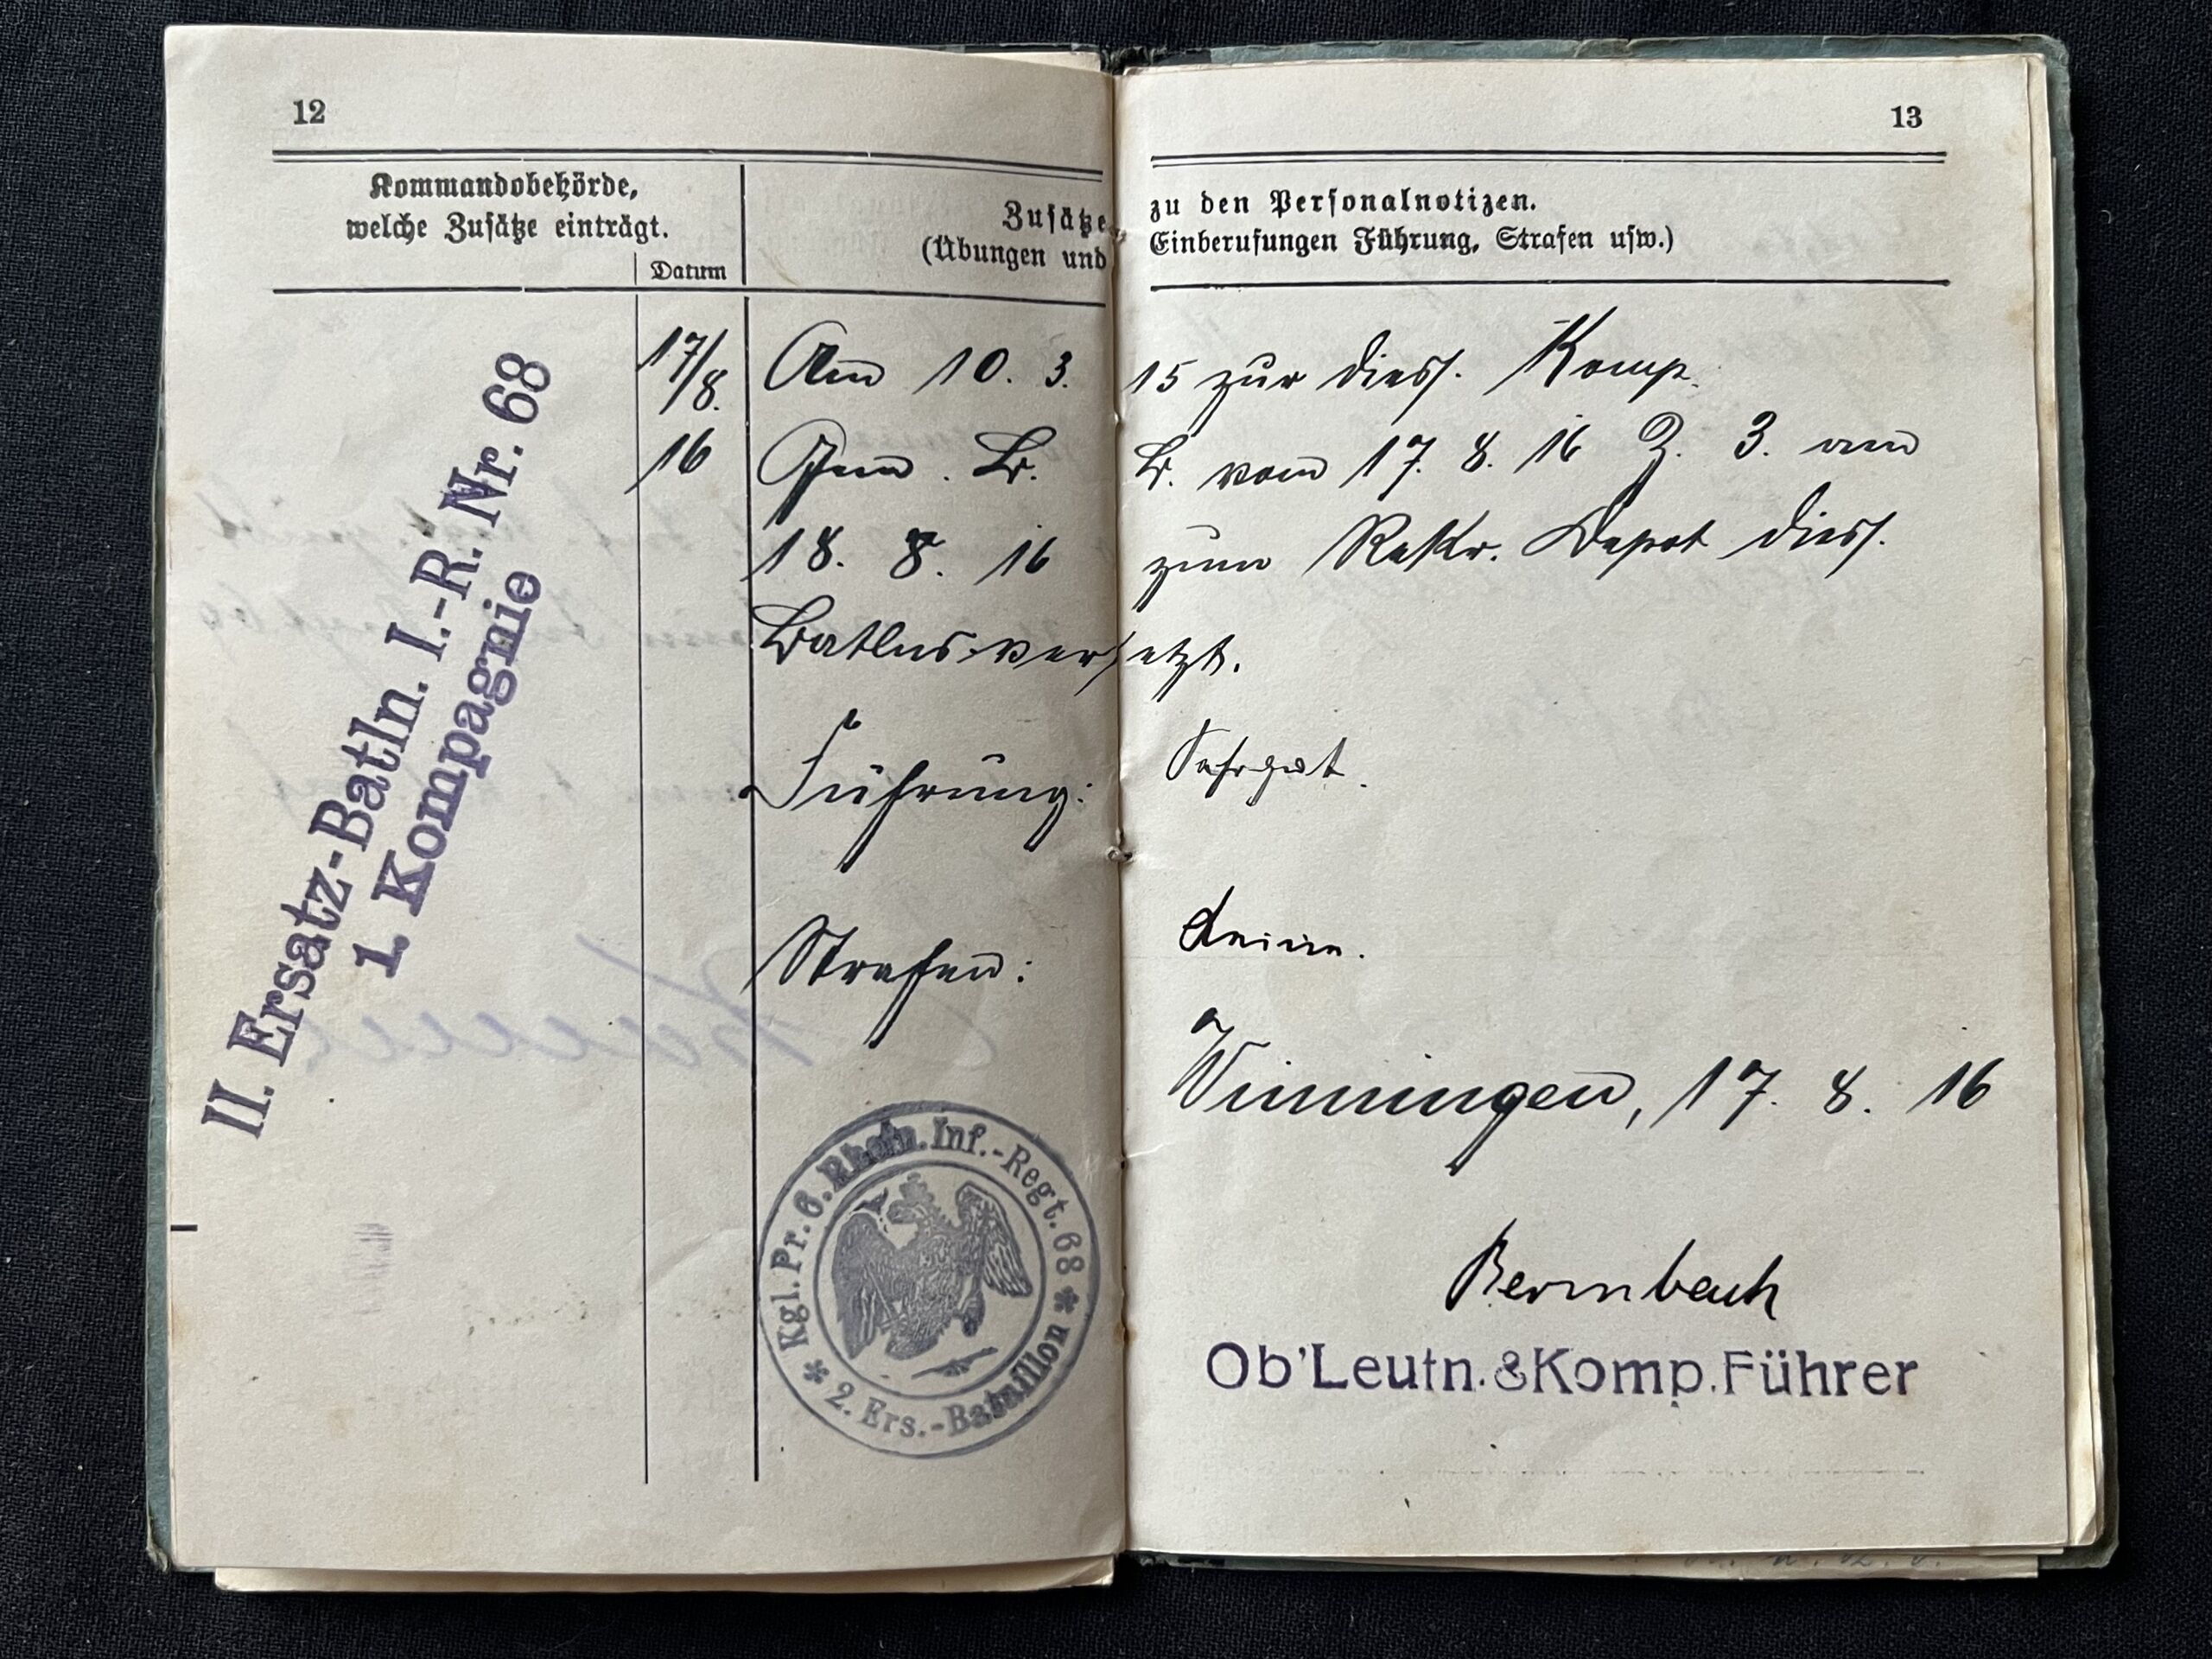 12
Kommandobehörde,
welche Zusätze einträgt.
Datum
Zusätze
(Übungen und
13
zu den Personalnotizen.
Einberufungen Führung, Strafen usw.)
II. Ersatz-Batln. I.-R. Nr. 68
1. Kompagnie
17/8.
16
Am 10. 3. 15 zur dies. Komp.
Gem. B. B. vom 17. 8. 16 Z. 3. am
18. 8. 16 zum Rekr. Depot dies.
Batlns. versetzt.
Führung: Sehr gut.
Strafen: Keine.
Winningen, 17. 8. 16
Kgl. Pr. 6. Rhein. Inf.-Regt. 68
* 2. Ers.-Bataillon *
Bermbach
Ob'Leutn. & Komp. Führer